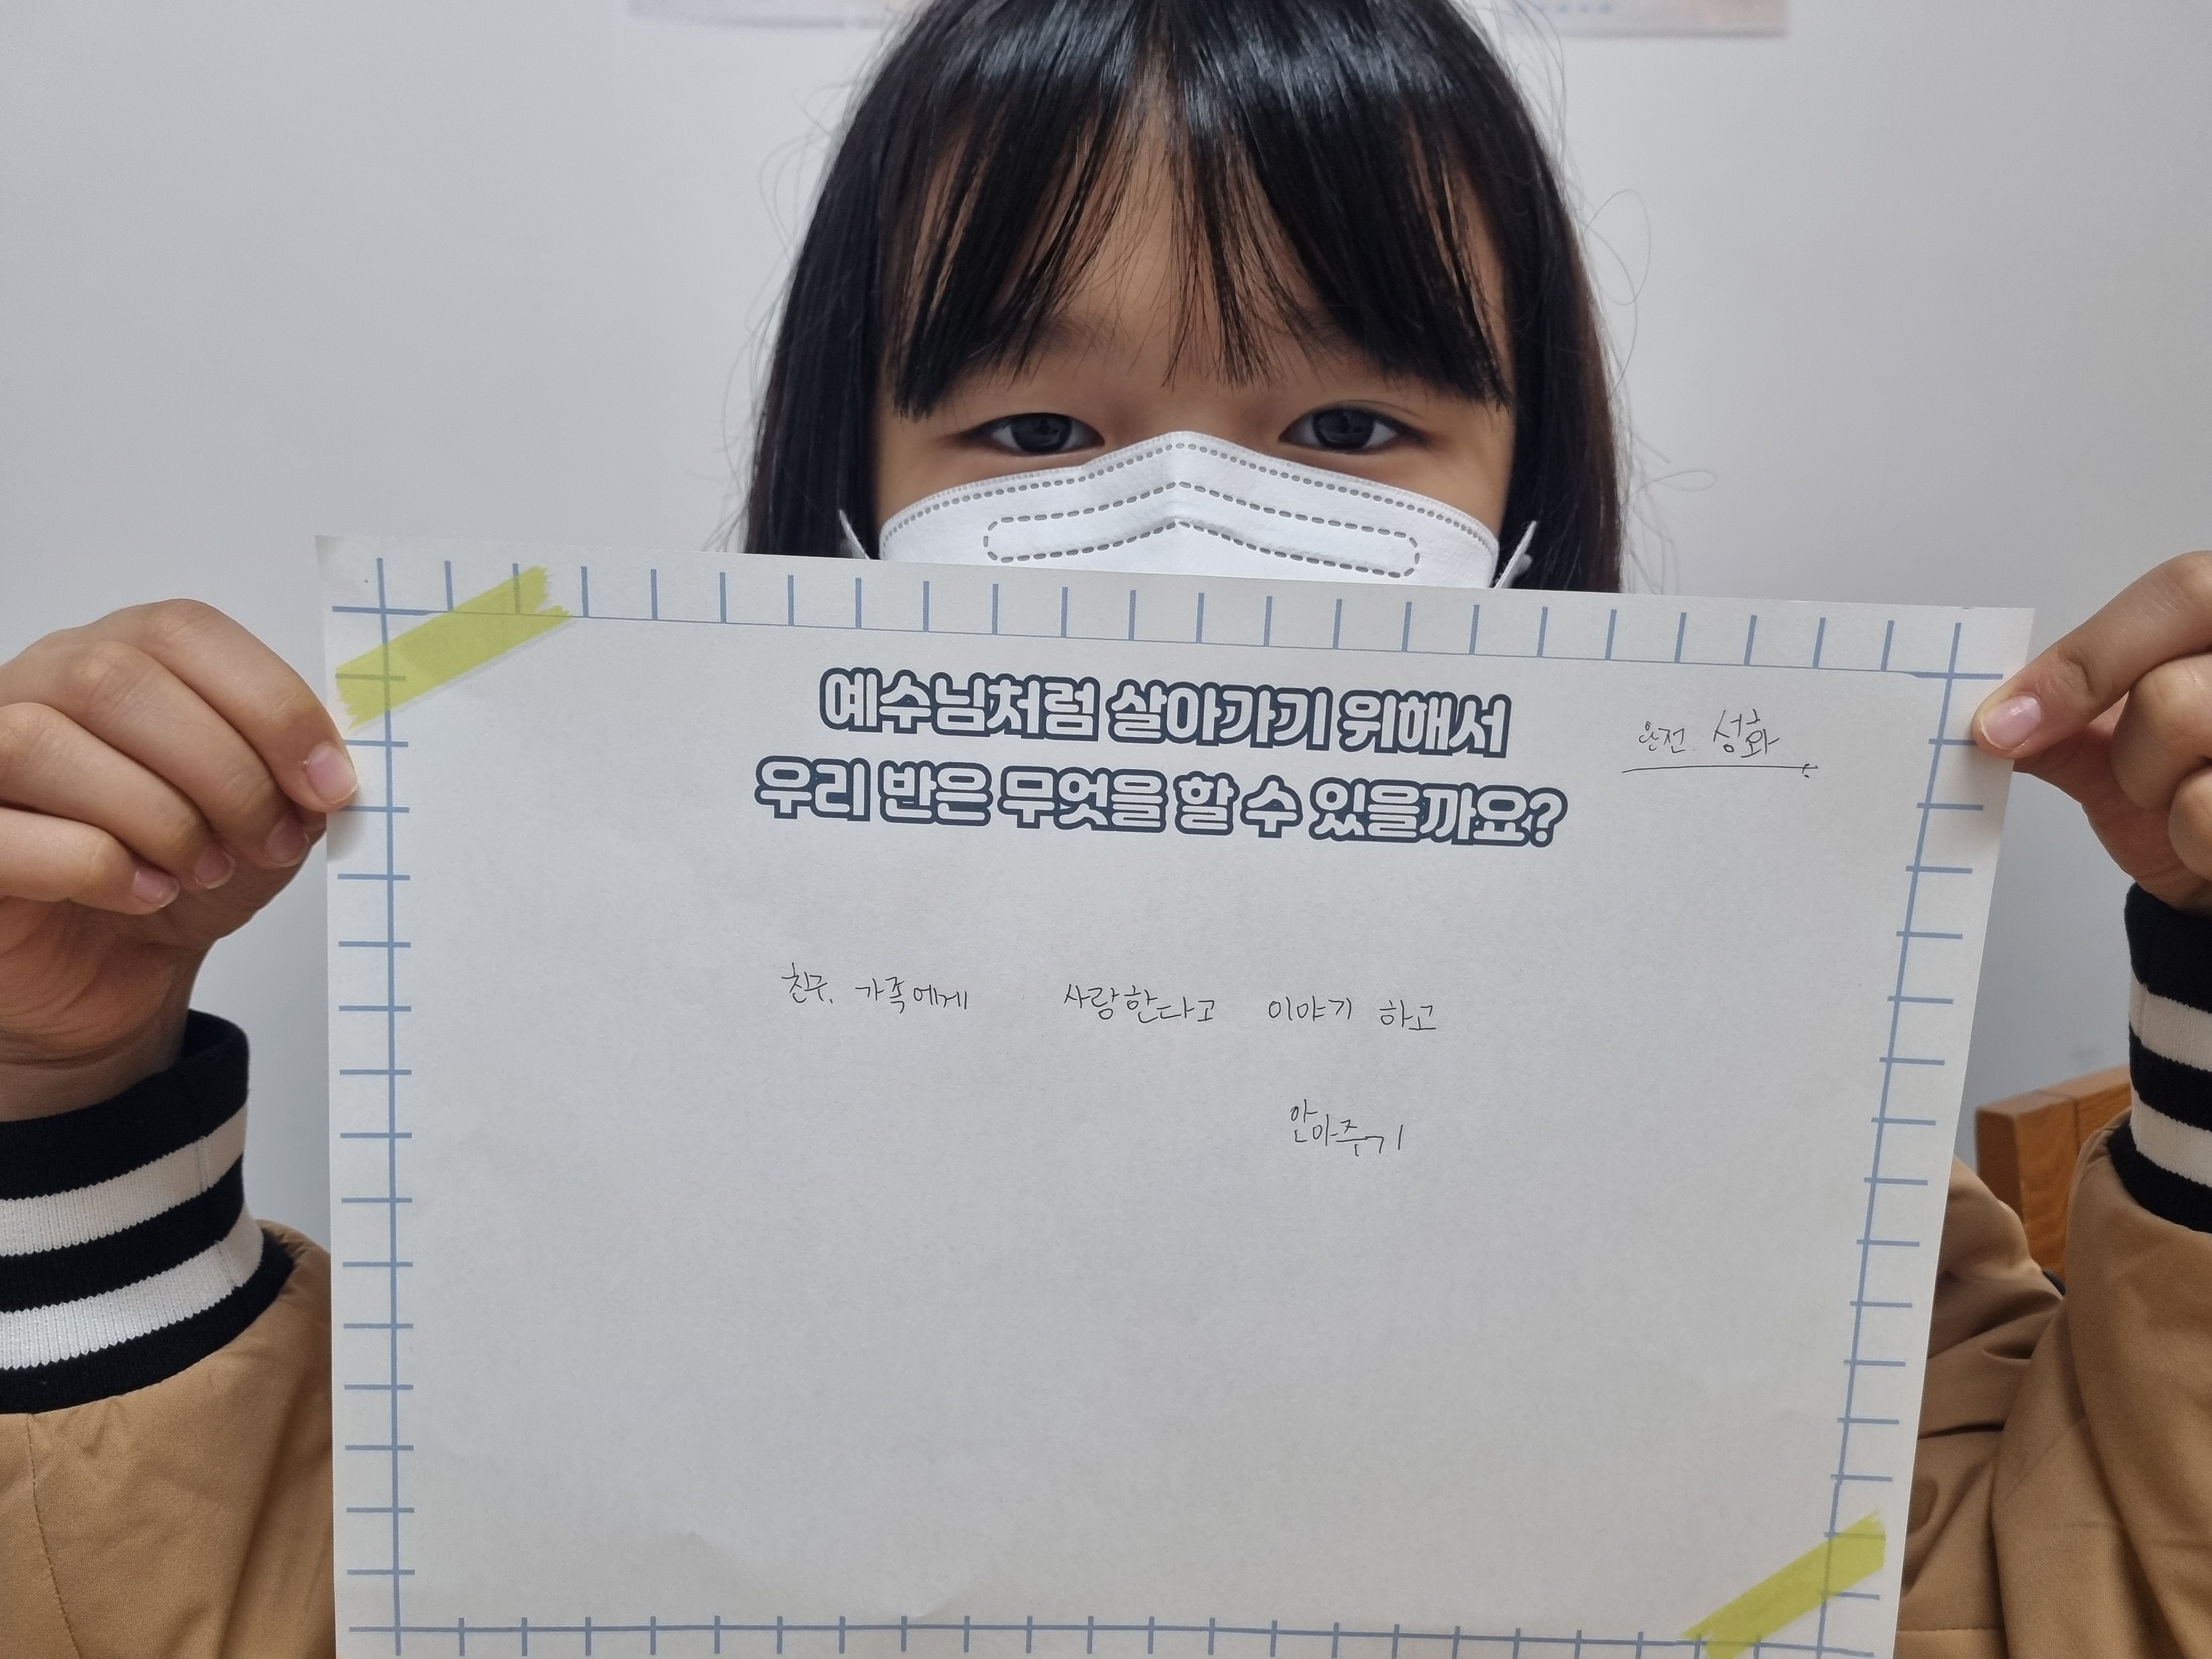 예수님처럼 살아가기 위해서
우리 반은 무엇을 할 수 있을까요?
완전 성화
친구, 가족에게 사랑한다고 이야기 하고
안아주기